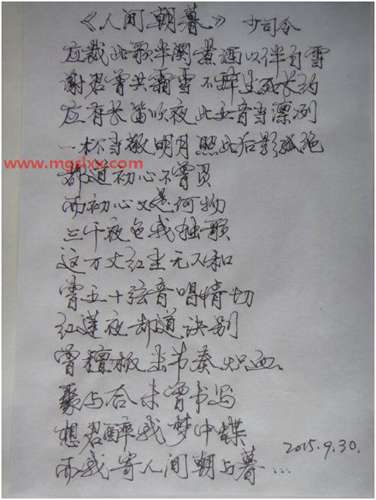 《人间朝暮》 少司命
应裁此歌半阕煮酒以伴白雪
谢君曾共霜雪 不醉生死长约
应有长笛吹夜 此去音尘凛冽
一杯当敬明月 照此后影孤绝
www.mgslxx.com
都道初心不曾灭
而初心又是何物
三千夜色我独歌
这万丈红尘无人和
曾五十弦音唱情切
红莲夜却道诀别
曾檀板来节奏
聚与合未曾书写
想君醉我梦中蝶
而我寄人间朝与暮...
2015.9.30.